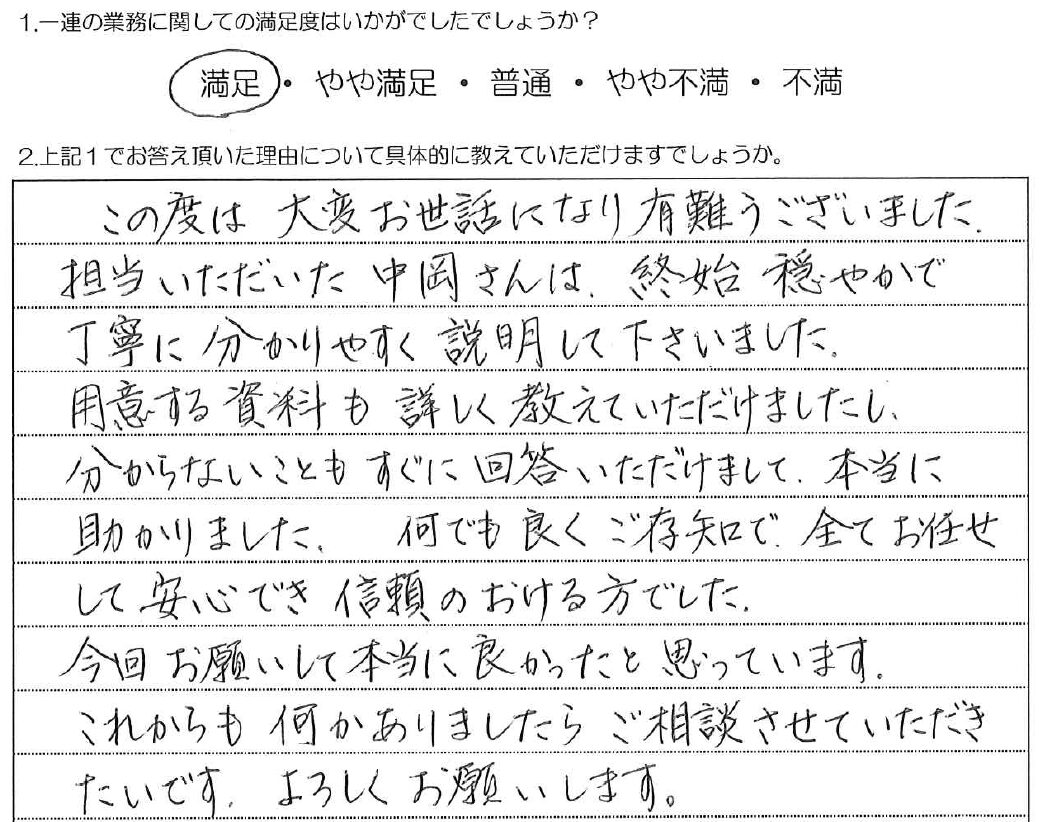 1.一連の業務に関しての満足度はいかがでしたでしょうか？
満足・ やや満足 ・ 普通 ・ やや不満 ・ 不満
2.上記１でお答え頂いた理由について具体的に教えていただけますでしょうか。
この度は 大変お世話になり有難うございました.
担当いただいた 中岡さんは、終始 穏やかで
丁寧に 分かりやすく 説明して下さいました.
用意する資料も 詳しく教えていただけましたし、
分からないことも すぐに 回答いただけまして、本当に
助かりました、 何でも良く ご存知で、全てお任せ
して 安心でき 信頼のおける方でした.
今回 お願いして本当に良かったと 思っています.
これからも 何かありましたら ご相談させていただき
たいです. よろしくお願いします。